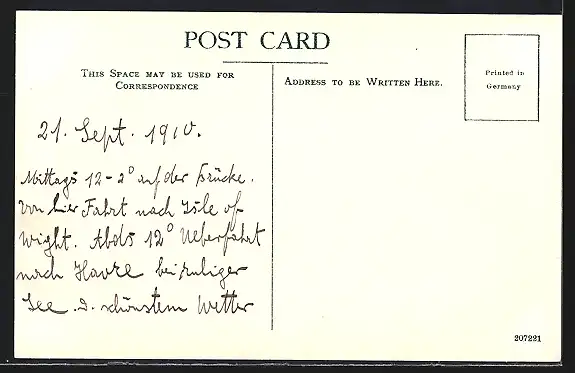 POST CARD
THIS SPACE MAY BE USED FOR
CORRESPONDENCE
ADDRESS TO BE WRITTEN HERE.
Printed in
Germany
21. Sept. 1910.
Mittags 12-2° auf der Brücke.
Von hier Fahrt nach Isle of
Wight. Abds 12° Ueberfahrt
nach Havre bei ruhiger
See. u. schönstem Wetter
207221